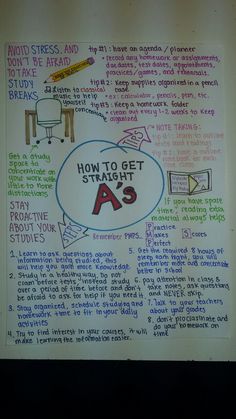 AVOID STRESS, AND
DON'T BE AFRAID
TO TAKE
STUDY
BREAKS
Listen to classical
music to help
yourself
concentrate
tip #1: have an agenda / planner
record any homework or assignments,
due dates, test dates, appointments,
practices/games, and reminders.
tip #2: Keep supplies organized in a pencil
case
ex: calculator, pencils, pen, etc.
tip #3: Keep a homework folder
clean out every 1-2 weeks to keep
organized
TIPS
NOTE TAKING:
Get a study
space to
concentrate on
your work with
little to none
distractions
HOW TO GET
STRAIGHT
A's
If you have spare
time, reading extra
material always helps
STAY
PROACTIVE
ABOUT YOUR
STUDIES
TIPS
Remember PMPS
Practice
Makes
Perfect
Scores
1. Learn to ask questions about
information being studied, this
will help you gain more knowledge
2. Study in a healthy way do not
cram before tests, instead study
over a period of time before and don't
be afraid to ask for help if you need it
3. Stay organized, schedule studying and
homework time to fit in your daily
activities
4. Try to find interest in your courses, it will
make learning the information easier.
5. Get the required 8 hours of
sleep each night, you will
remember more and concentrate
better in school
6. pay attention in class &
take notes, ask questions
and NEVER skip.
7. Talk to your teachers
about your grades
8. don't procrastinate and
do your homework on
time